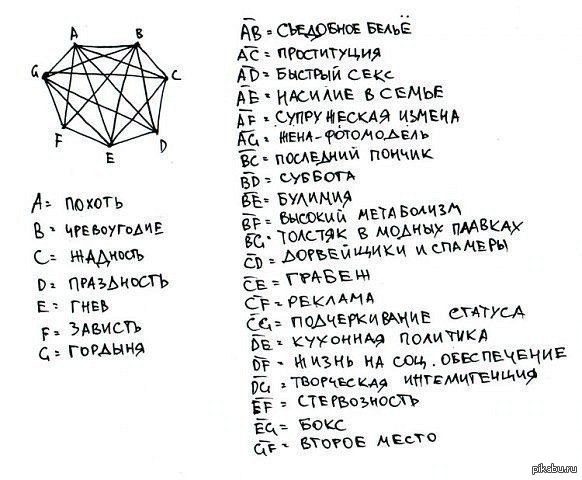 A
B
G
C
F
D
E
A = ПОХОТЬ
B = ЧРЕВОУГОДИЕ
C = ЖАДНОСТЬ
D = ПРАЗДНОСТЬ
E = ГНЕВ
F = ЗАВИСТЬ
G = ГОРДЫНЯ
AB = СЪЕДОБНОЕ БЕЛЬЁ
AC = ПРОСТИТУЦИЯ
AD = БЫСТРЫЙ СЕКС
AE = НАСИЛИЕ В СЕМЬЕ
AF = СУПРУЖЕСКАЯ ИЗМЕНА
AG = ЖЕНА-ФОТОМОДЕЛЬ
BC = ПОСЛЕДНИЙ ПОНЧИК
BD = СУББОТА
BE = БУЛИМИЯ
BF = ВЫСОКИЙ МЕТАБОЛИЗМ
BG = ТОЛСТЯК В МОДНЫХ ПЛАВКАХ
CD = ДОРВЕЙЩИКИ И СПАМЕРЫ
CE = ГРАБЕЖ
CF = РЕКЛАМА
CG = ПОДЧЕРКИВАНИЕ СТАТУСА
DE = КУХОННАЯ ПОЛИТИКА
DF = ЖИЗНЬ НА СОЦ. ОБЕСПЕЧЕНИЕ
DG = ТВОРЧЕСКАЯ ИНТЕЛИГЕНЦИЯ
EF = СТЕРВОЗНОСТЬ
EG = БОКС
GF = ВТОРОЕ МЕСТО
pikabu.ru